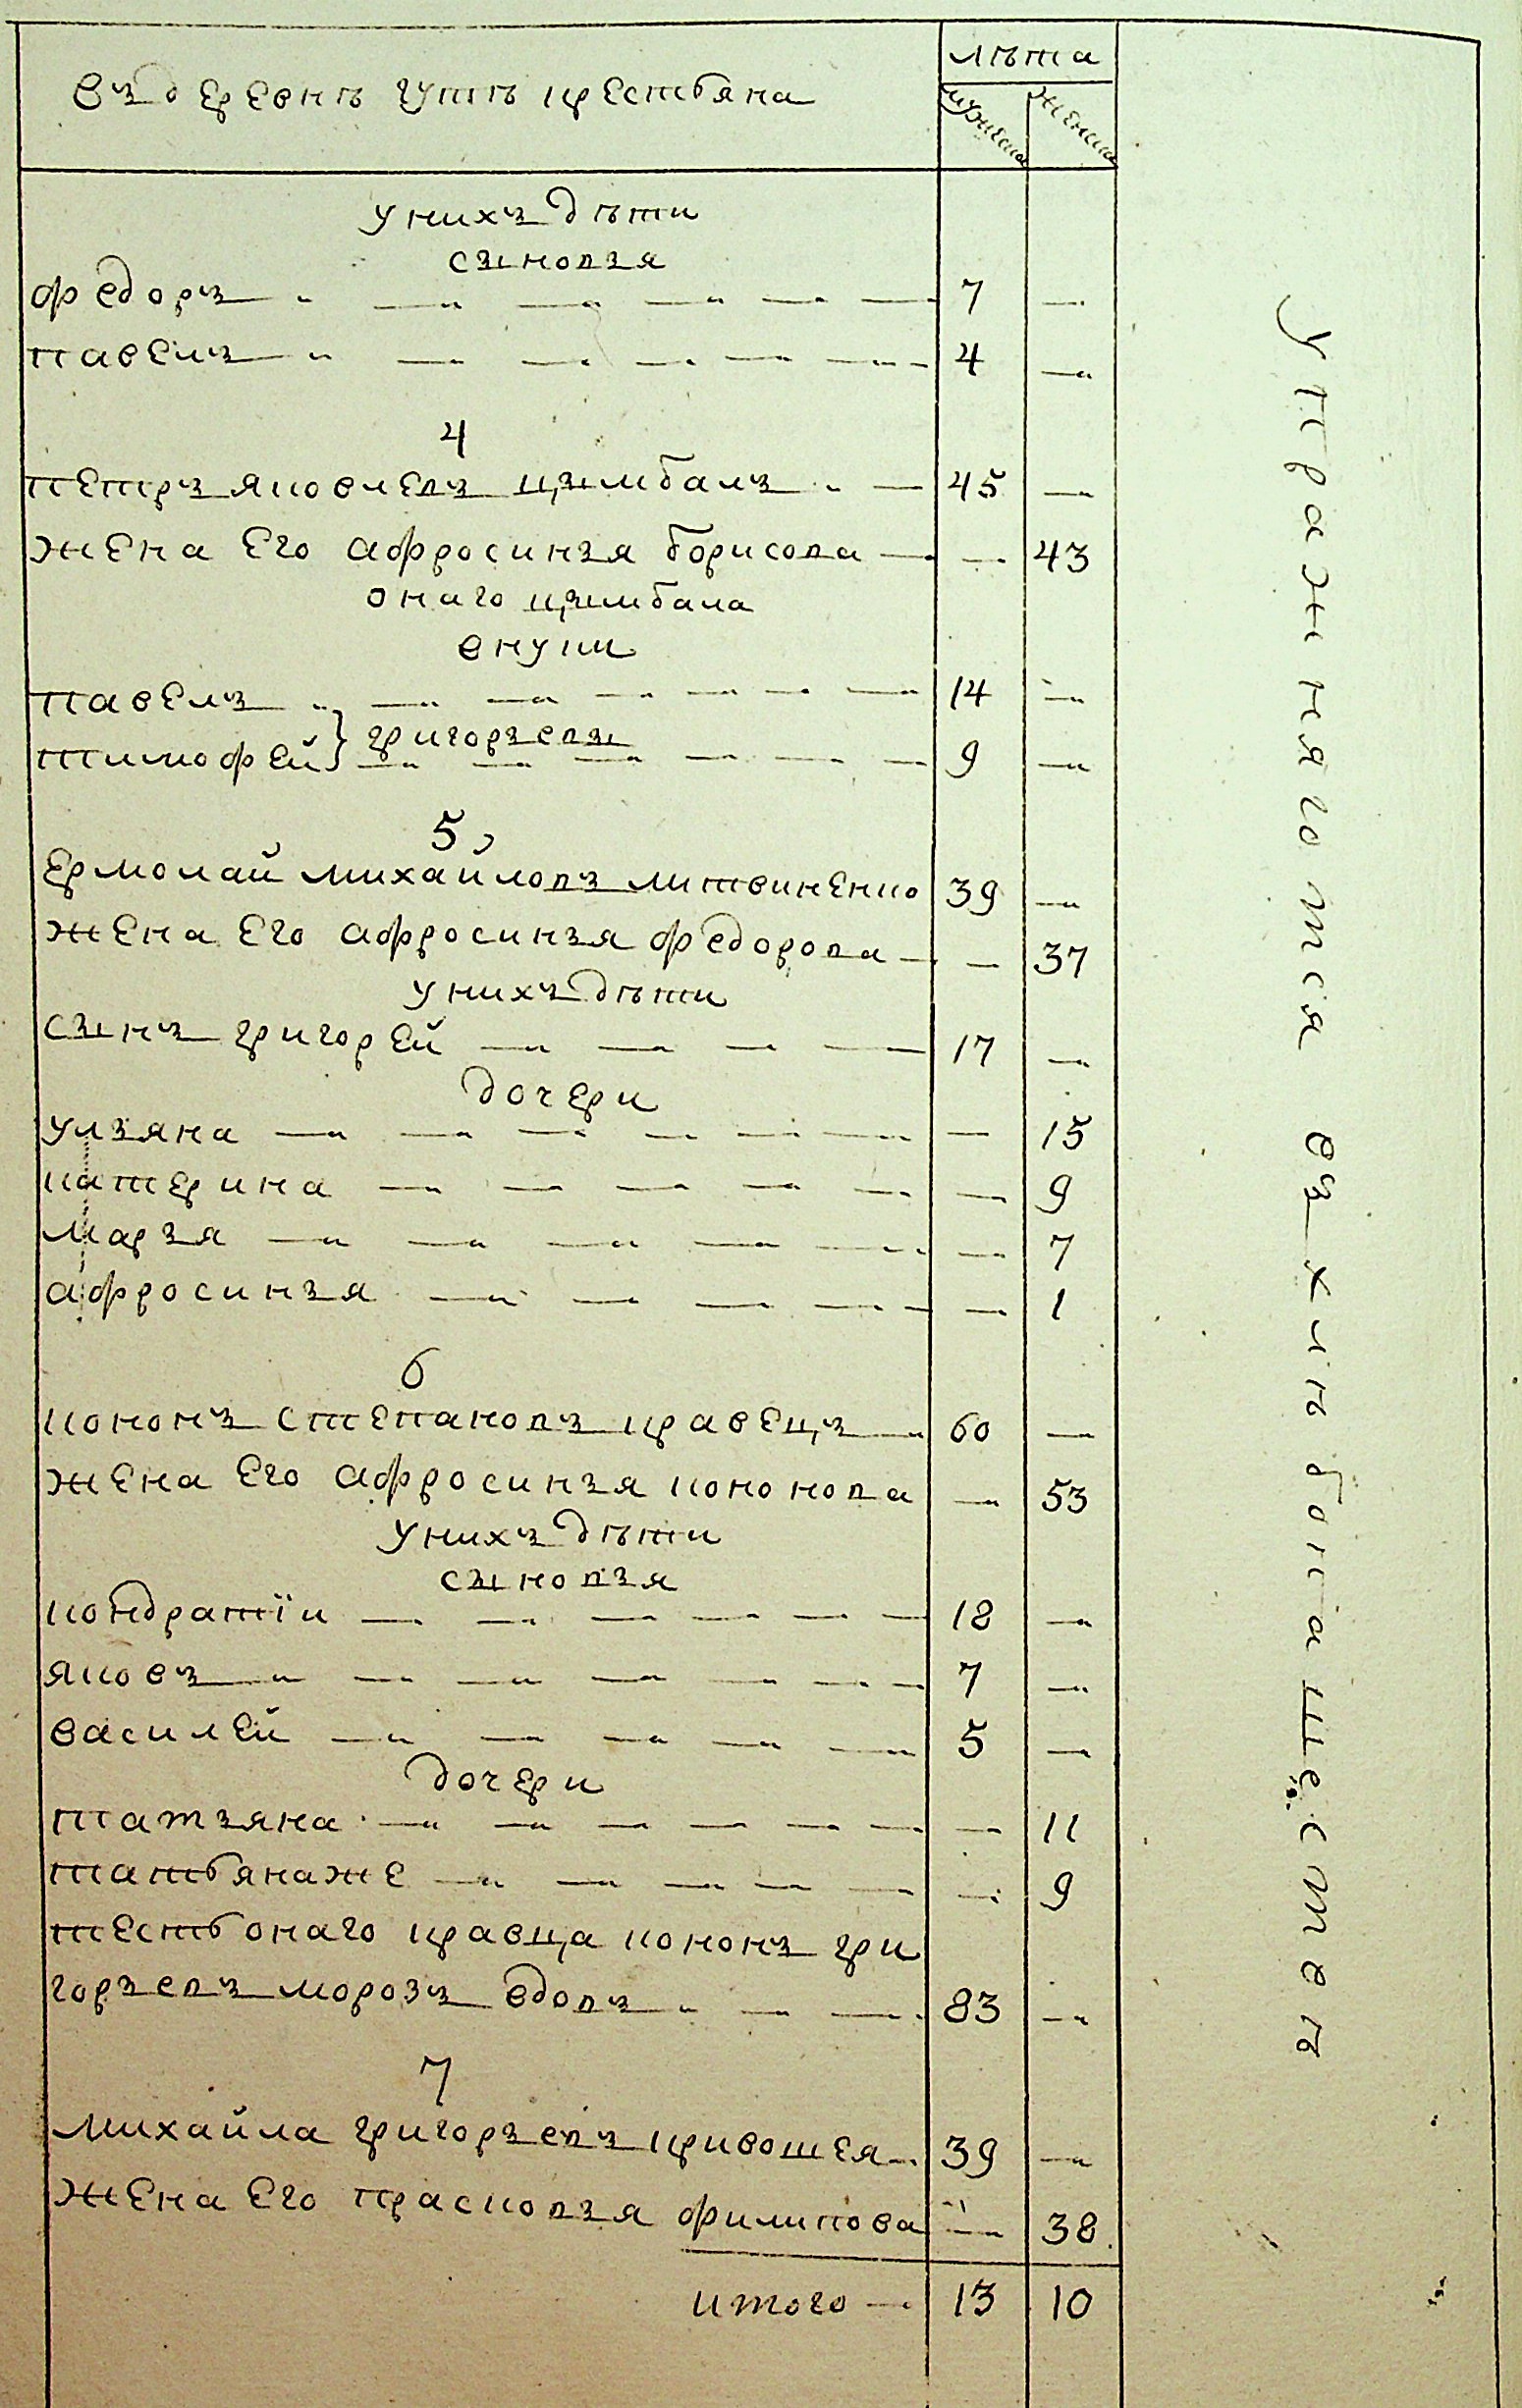 лѣта
въ деревнѣ гутѣ крестьяна
мужеска
женска
у нихъ дѣти
сыновья
федоръ 7 —
павелъ 4 —
4
петръ яковлевъ цымбалъ 45 —
жена его афросинья борисова — 43
онаго цымбала
внуки
павелъ 14 —
тимофей } григорьевы 9 —
5
ермолай михайловъ литвиненко 39 —
жена его афросинья федорова — 37
у нихъ дѣти
сынъ григорей 17 —
дочери
ульяна — 15
катерина — 9
марья — 7
афросинья — 1
6
кононъ степановъ кравецъ 60 —
жена его афросинья кононова — 53
у нихъ дѣти
сыновья
кондратїи 18 —
яковъ 7 —
василей 5 —
дочери
татьяна — 11
татьяна же — 9
тесть онаго кравца кононъ гри
горьевъ морозъ вдовъ 83 —
7
михайла григорьевъ кривошея 39 —
жена его прасковья филипова — 38
итого — 13 10
упражняются въ хлѣбопашествѣ